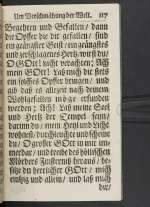 Um Verschmähung der Welt. 117
Begehren und Gefallen / dann
die Opffer die dir gefallen / sind
ein geängster Geist / ein geängstes
und zerschlagenes Hertz wirst du /
O GOtt! nicht verachten; Ach
mein GOtt! Laß mich dir stets
ein solches Opffer bringen / und
daß es allezeit nach deinem
Wohlgefallen möge erfunden
werden; Ach! Laß meine Seel
und Hertz der Tempel seyn /
darinn du / mein Heyl und Liecht
wohnest / durchleuchte und scheine
du / O grosser GOtt in mir im-
merdar / und treibe des höllischen
Mörders Finsternuß heraus / be-
sitze du herrlicher GOtt / mich
eintzig und allein / und laß mich
dir /